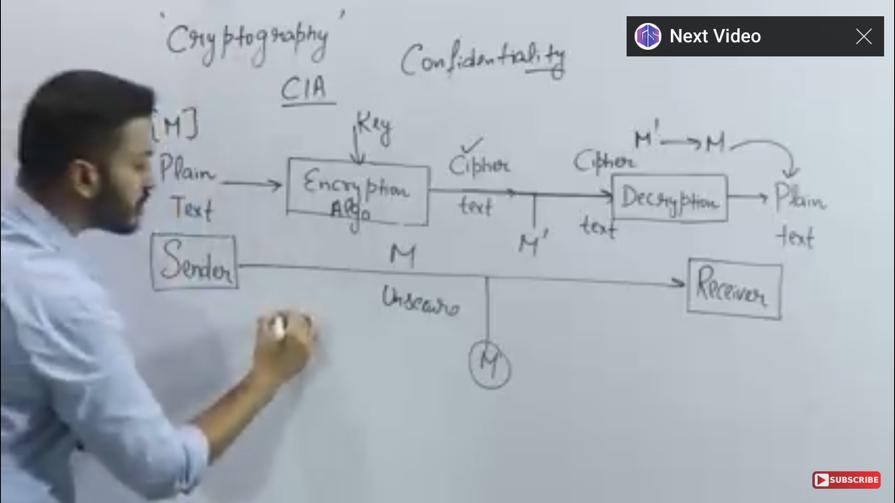 'Cryptography'
Confidentiality
CIA
Next Video
[M]
Key
M' → M
Plain
Text
Encryption
Algo
Cipher
text
M'
Cipher
text
Decryption
Plain
text
Sender
M
Unsecure
Receiver
M
SUBSCRIBE